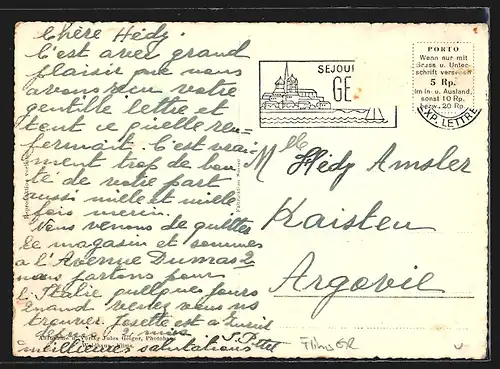 Chère Hédy.
C'est avec grand
plaisir que nous
avons reçu votre
gentille lettre et
tout ce qu'elle ren-
fermait. C'est vrai-
ment trop de bon-
té de votre part
aussi mille et mille
fois merci.
Nous venons de quitter
le magasin et sommes
à l'Avenue Dumas 2
nous partons pour
l'Italie quelques jours
quand venez vous ns
trouver. Josette est à Zurich
2 mois
meilleures salutations
SEJOUR
GE
PORTO
Wenn nur mit
dess. u. Unter-
schrift versehen
5 Rp.
im In- u. Ausland,
sonst 10 Rp.
bezw. 20 Rp.
EXP. LETTRE
Mlle Hédy Amsler
Kaisten
Argovie
Jules Geiger, Photohaus
Flims GR